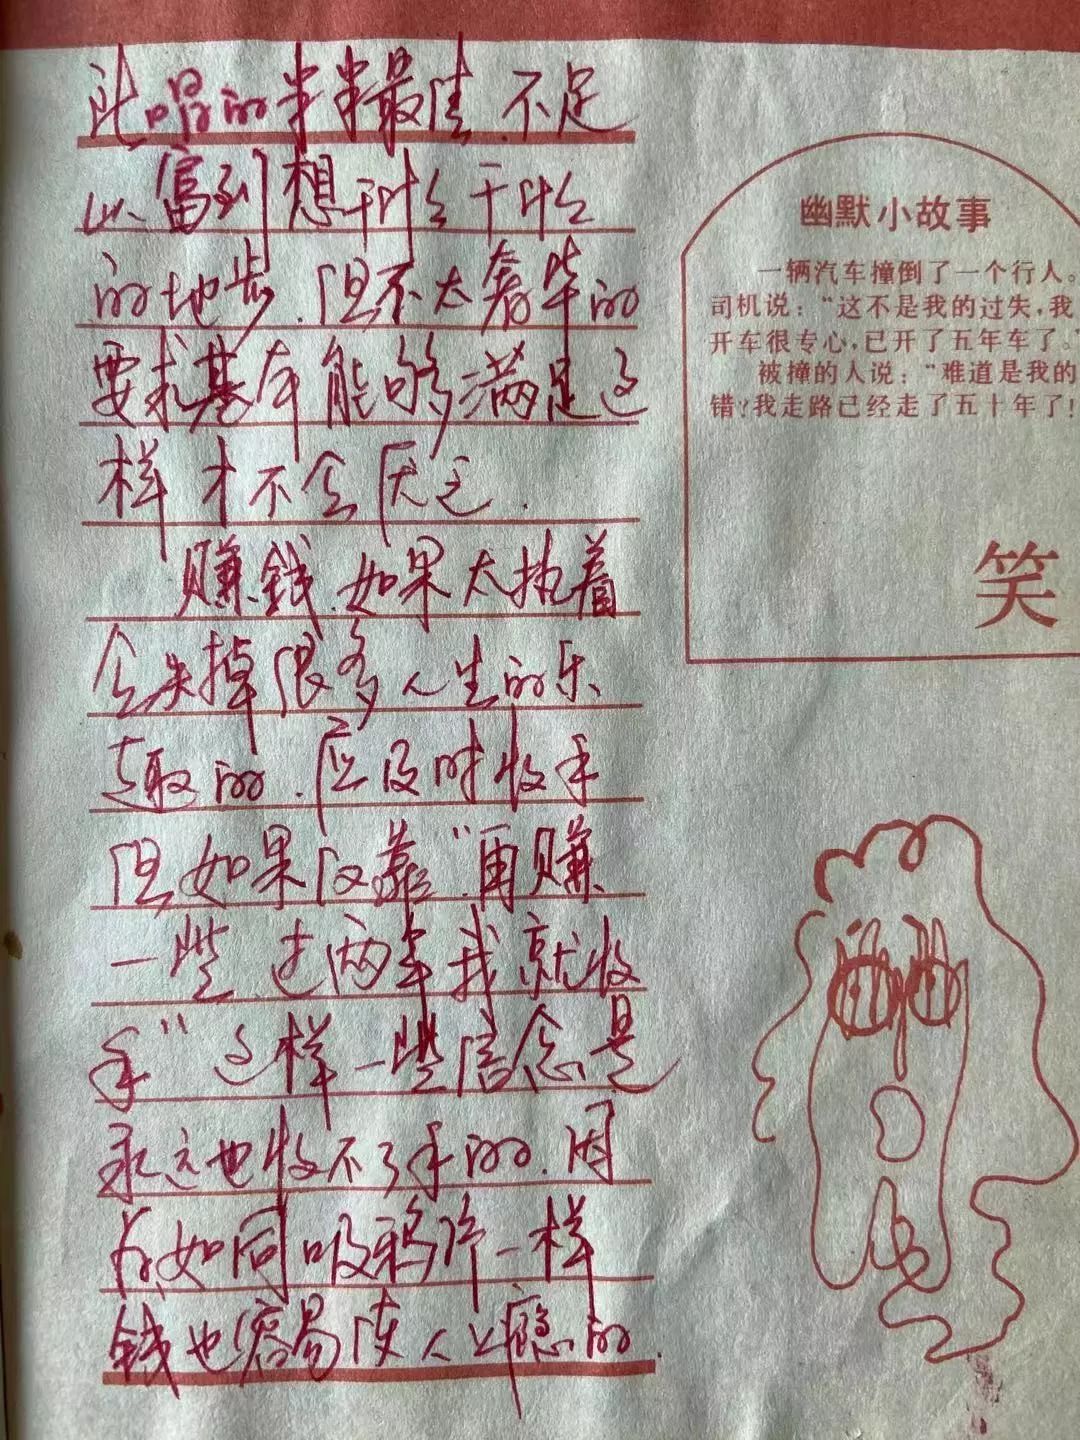 此唱的半半最佳.不足
以富到想干什么干什么
的地步.但不太奢华的
要求基本能够满足这
样才不会厌之.
赚錢.如果太执着
会失掉很多人生的乐
趣的.应及时收手
但如果仅靠“再赚
一些 过两年我就收
手”这样一些信念是
永远也收不了手的.因
为如同吸鸦片一样
錢也容易使人上瘾的.
幽默小故事
一辆汽车撞倒了一个行人。
司机说：“这不是我的过失，我
开车很专心，已开了五年车了。”
被撞的人说：“难道是我的
错？我走路已经走了五十年了！
笑